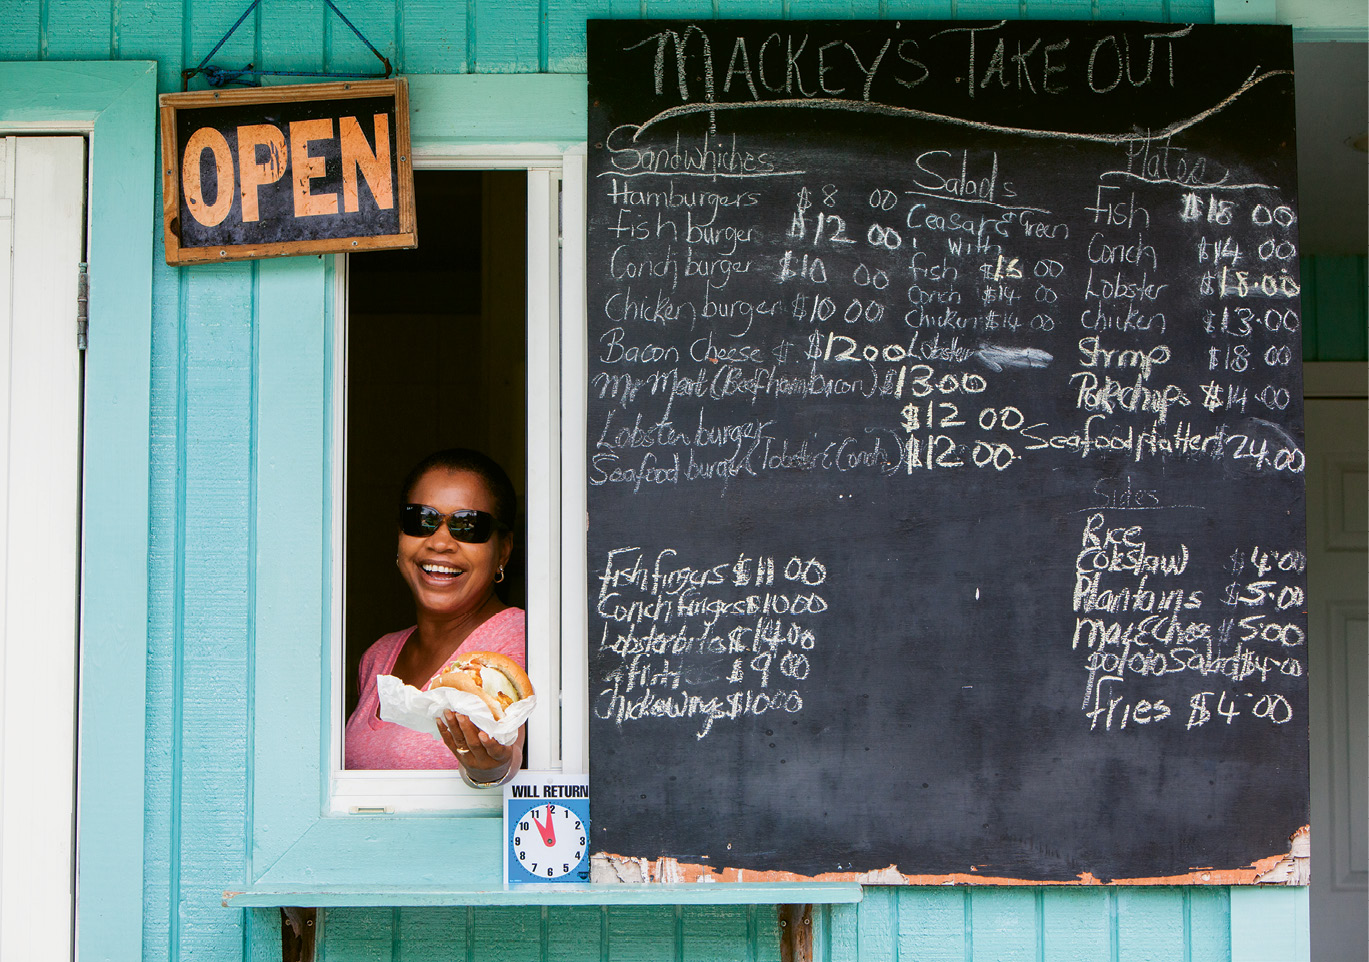 OPEN
MACKEY'S TAKE OUT
Sandwhiches
Hamburgers $8 00
Fish burger $12 00
Conch burger $10 00
Chicken burger $10 00
Bacon Cheese $12 00
Mr Meat (Beef ham bacon) $13.00
Lobster burger $12 00
Seafood burger (lobster & Conch) $12.00
Fish fingers $11 00
Conch fingers $10 00
Lobster bites $14.00
$9 00
Chicken wings $10 00
Salads
Ceasar & Green
with
fish $16 00
Conch $14 00
Chicken $14.00
Lobster
Plates
Fish $18 00
Conch $14 00
Lobster $18.00
Chicken $13.00
Shrmp $18 00
Porkchops $14.00
Seafood platter $24.00
Sides
Rice
Coleslaw $4.00
Plantains $5.00
Mac & Chee $5.00
potato Salad $4.00
fries $4.00
WILL RETURN
12
1
2
3
4
5
6
7
8
9
10
11